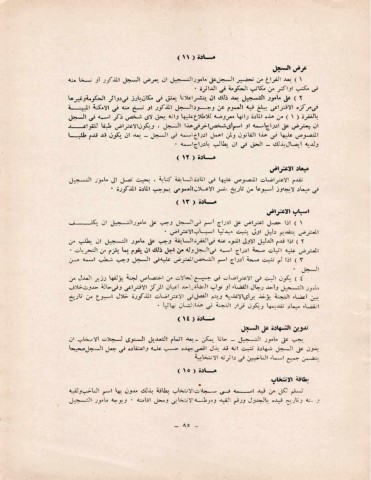 مــادة (١١)
عرض السجل
(١) بعد الفراغ من تحضير السجل على مامور التسجيل ان يعرض السجل المذكور او نسخا منه
في مكتب او اكثر من مكاتب الحكومة في الدائرة.
(٢) على مامور التسجيل بعد ذلك ان ينشر اعلانا يعلق في مكان بارز في دوائر الحكومة وغيرها
في مركزه الاقتراعي يبلغ فيه العموم عن وجود السجل المذكور او نسخ منه في الامكنة المبينة
بالفقرة (١) من هذه المادة وانها معروضة للاطلاع عليها وانه يحق لاي شخص ذكر اسمه في السجل
ان يعترض على ادراج اسمه او اسم اي شخص اخر في هذا السجل، ويكون الاعتراض طبقا للقواعد
المنصوص عليها في هذا القانون ولمن اهمل ادراج اسمه في السجل - بعد ان يكون قد قدم طلبا
ولديه ايصال بذلك - الحق في ان يطالب بادراج اسمه.
مــادة (١٢)
ميعاد الاعتراض
تقدم الاعتراضات المنصوص عليها في المادة السابقة كتابة، بحيث تصل الى مامور التسجيل
في ميعاد لايتجاوز أسبوعا من تاريخ نشر الاعلان العمومي بموجب المادة المذكورة.
مــادة (١٣)
اسباب الاعتراض
(١) اذا حصل اعتراض على ادراج اسم في السجل وجب على مامور التسجيل ان يكلف
المعترض بتقديم دليل اولي يثبت مبدئيا اسباب الاعتراض.
(٢) اذا قدم الدليل الاولى المنوه عنه في الفقرة السابقة وجب على مامور التسجيل ان يطلب من
المعترض عليه اثبات صحة ادراج اسمه في السجل وله من اجل ذلك ان يقوم بما يلزم من التحريات.
(٣) اذا لم تثبت صحة ادراج اسم الشخص المعترض عليه في السجل وجب شطب اسمه من
السجل.
(٤) يكون البت في الاعتراضات في جميع الحالات من اختصاص لجنة يؤلفها وزير العدل من
مامور التسجيل واحد رجال القضاء او نواب القضاء واحد اعيان المركز الاقتراعي وفي حالة حدوث خلاف
بين اعضاء اللجنة يؤخذ برأي الاغلبية ويتم الفصل في الاعتراضات المذكورة خلال اسبوع من تاريخ
انقضاء ميعاد تقديمها ويكون قرار اللجنة في هذا الشان نهائيا.
مــادة (١٤)
تدوين الشهادة على السجل
يجب على مامور التسجيل - حالما يمكن - بعد اتمام التعديل السنوى لسجلات الانتخاب ان
يدون على السجل شهادة تثبت انه قد بذل اقصى جهده حسب علمه واعتقاده في جعل السجل صحيحا
يتضمن جميع اسماء الناخبين في دائرته الانتخابية
مــادة (١٥)
بطاقة الانتخاب
تسلم لكل من قيد اسمه في سجلات الانتخاب بطاقة بذلك مدون بها اسم الناخب ولقبه
وسنه وتاريخ قيده بالجدول ورقم القيد وموطنه الانتخابي ومحل اقامته. ويوجه مامور التسجيل
- ٨٥ -